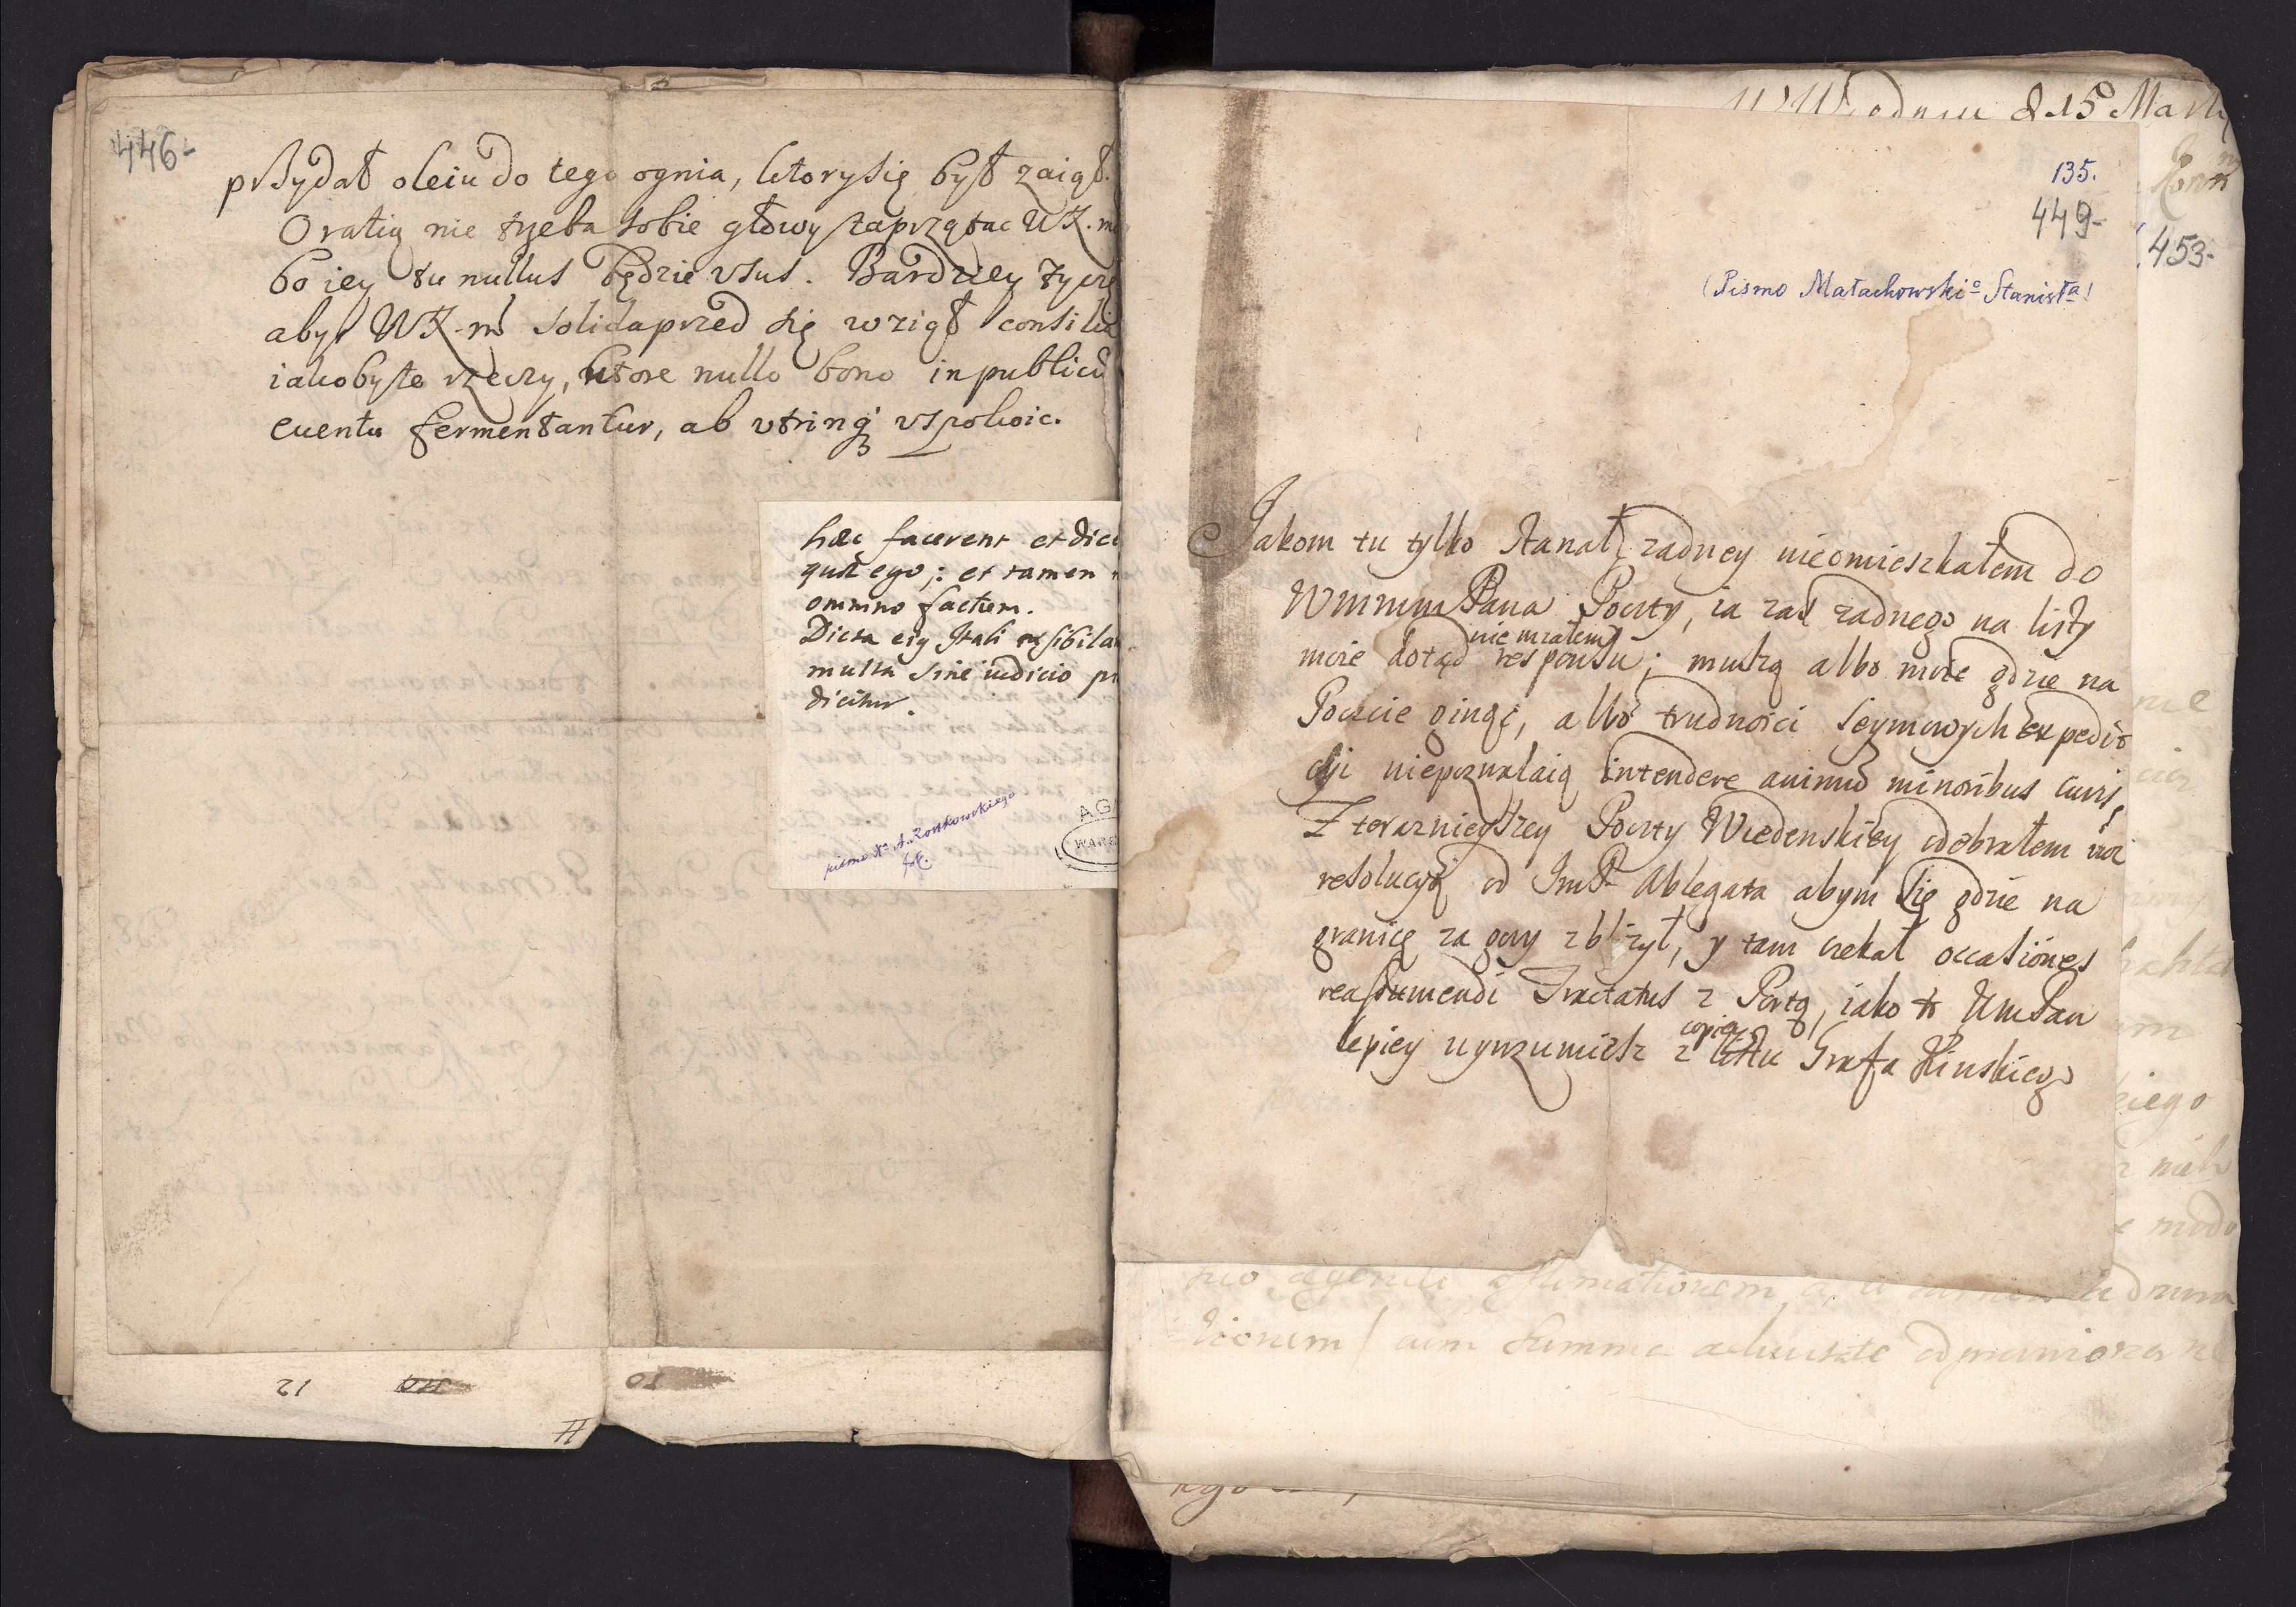 446-
przydał oleiu do tego ognia, ktory się był zaiął.
Oratią nie trzeba sobie głowy zaprzątac WX.m
bo iey tu nullus będzie vsus. Bardziey życzę
abyś WX.m solida przed się wziął consilia
iakoby te rzeczy, ktore nullo bono in publicū
euentu fermentantur, ab utrinq vspokoic.
haec facerent et dice
quae ego; et tamen
omnino factum.
Dicta eiq Itali sibila
multa sine iudicio pr
dicitur.
pismo Xa A. Zonkowskiego
AG
WARS
12
10
II
W Wiedniu d 15 Marty
135.
449-
453-
(Pismo Małachowskio Stanisła)
Jakom tu tylko stanął, zadney nieomieszkałem do
Wmmm Pana Poczty, ia zas zadnego na listy
moie dotąd nie miałem responsu; muszą albo moie gdzie na
Poczcie ginąć, albo trudnosci Seymowych expedi
cyi niepozwalaią intendere animū minoribus curis,
Z terazniejszey Poczty Wiedenskiey odebrałem
resolucyą od ImP Ablegata abym się gdzie na
granicę za gory zblizył, y tam czekał occasiones
reassumendi Tractatus z Portą, iako to WmPan
lepiey wyrozumiesz z copiey listu Grafa Kinskiego
kiego
z nich
modo
aestimationem
summa